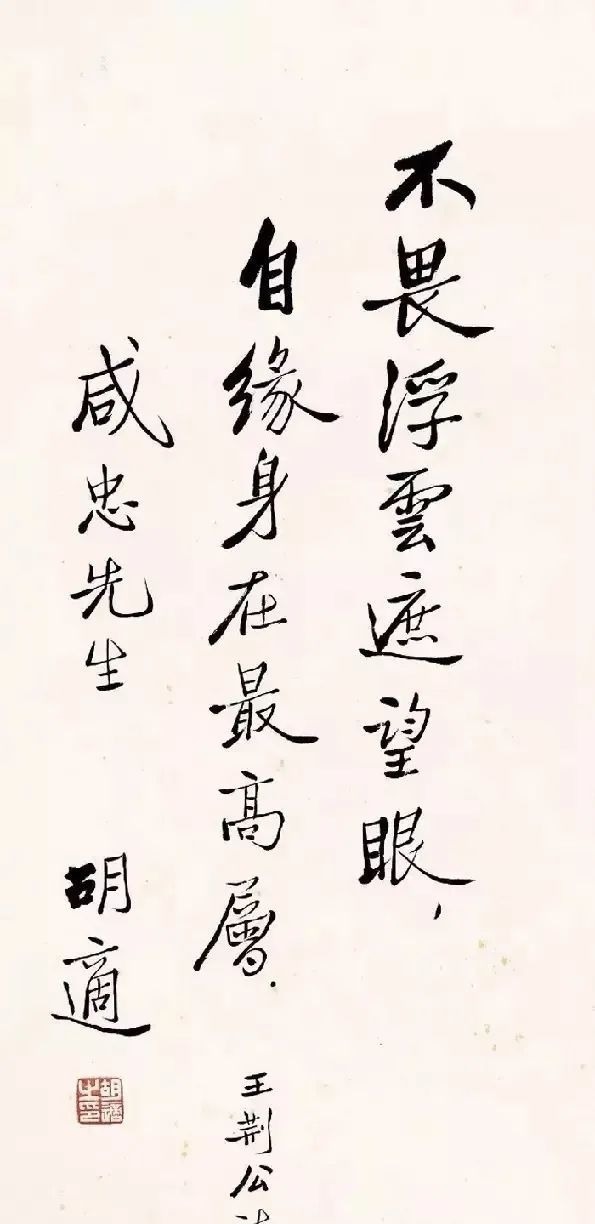 不畏浮雲遮望眼，
自缘身在最高層．
王荆公
咸忠先生
胡適
胡適之印